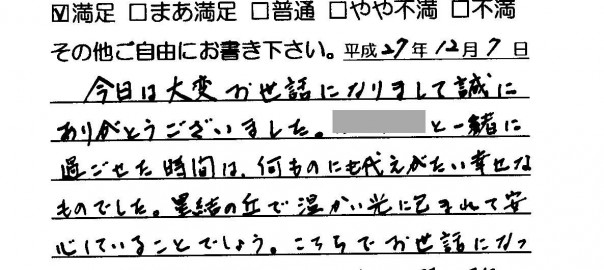 ☑満足 □まあ満足 □普通 □やや不満 □不満
その他ご自由にお書き下さい。平成27年12月7日
今日は大変お世話になりまして誠に
ありがとうございました。と一緒に
過ごせた時間は、何ものにも代えがたい幸せな
ものでした。の丘で温かい光に包まれて安
心していることでしょう。こちらでお世話になっ